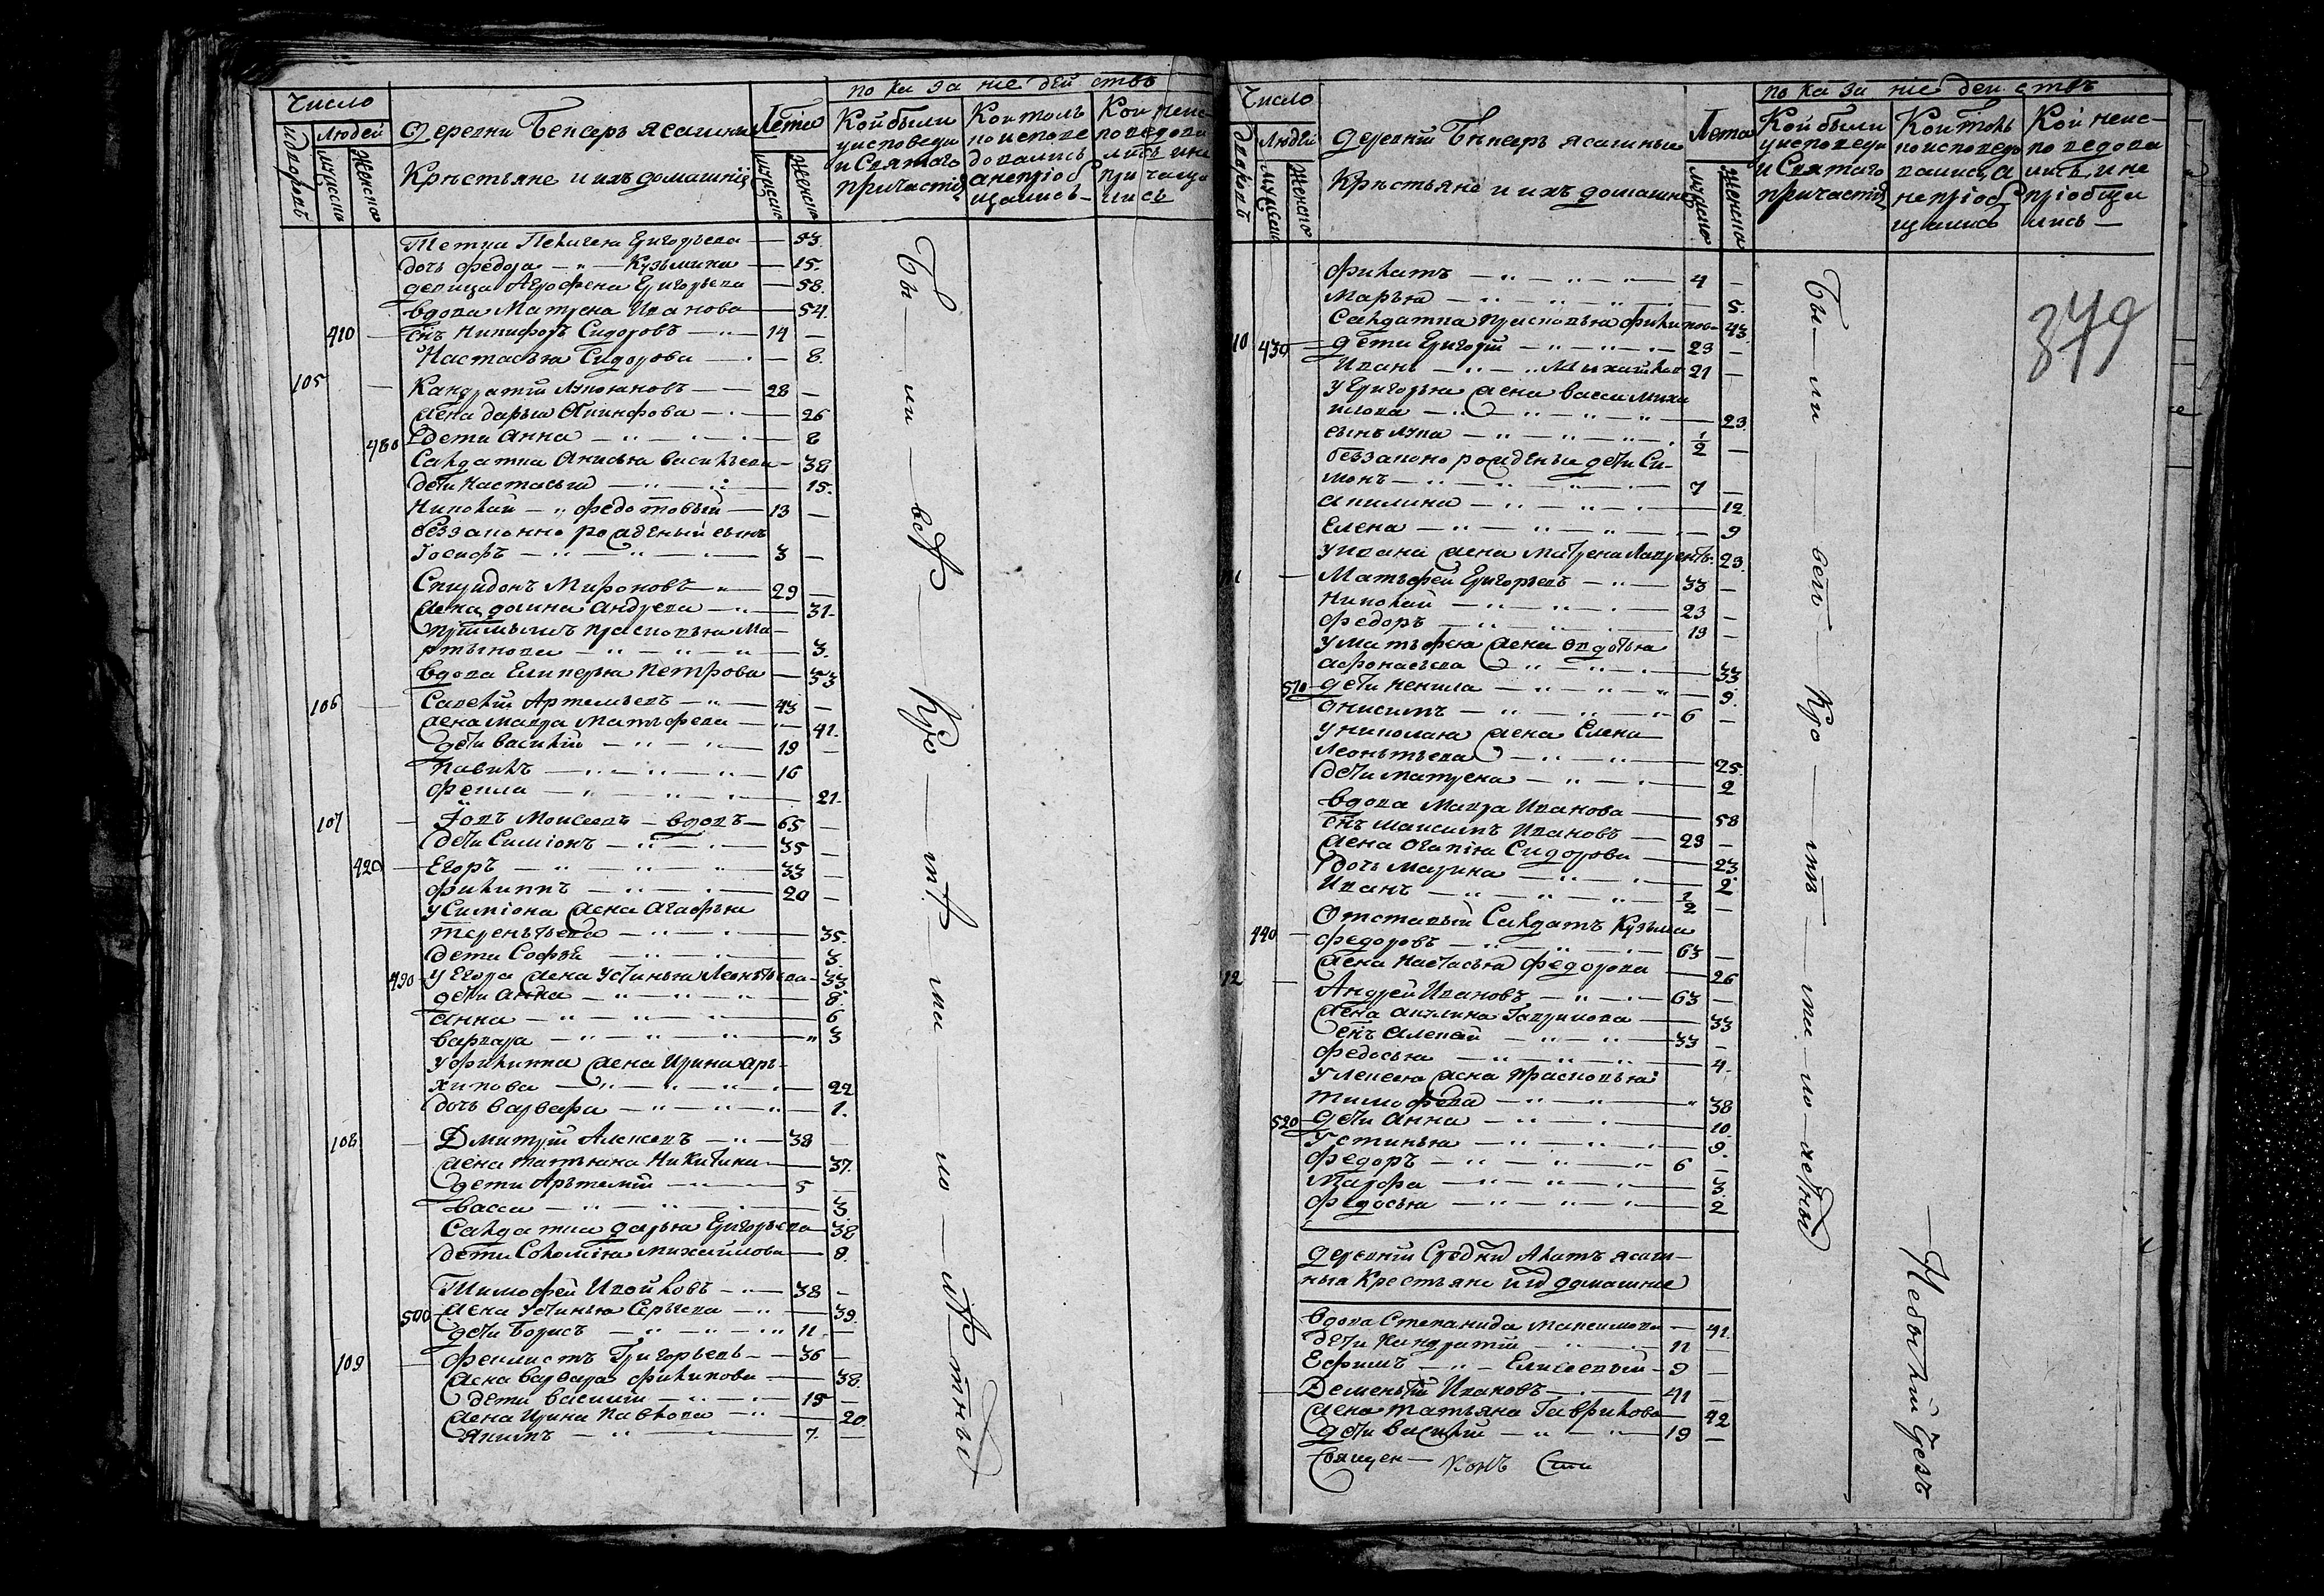 Число
Людей
Дворовъ
мужеска
женска
Деревни Бексеръ ясашные
Крестьяне и ихъ домашніе
Лета
мужеска
женска
показаніе действъ
Кои были
у исповеди
и Святаго
причастія
Кои токмо
по испове
довались
а непріоб
щались
Кои неис
поведова
лись и не
причаща
лись
Тетка Пелагея Григорьева — 53.
дочь Федора — " — Кузьмина — 15.
девица Агрофена Григорьева — 58.
вдова Матрена Иванова — 54
410 — сынъ Никифоръ Сидоровъ — 14 —
Настасья Сидорова — 8.
105 — Кандратій — 28 —
жена дарья — 26
480 дети Анна — " — 8
Салдатка Анисья Васильева — 38
дети Настасья — 15.
Николай — " Федотовы — 13 —
беззаконно рожденный сынъ
Іосифъ — " — 3 —
Спиридонъ Мироновъ — " — 29 —
жена Андреева — " — 31
Прасковья Ма-
ртынова — " — " — 3.
вдова Гликерья Петрова — 53
106 — Савелій Артемьевъ — " — 43 —
жена Мавра Матьфеева — 41.
дети Василій — " — " — 19 —
Павилъ — " — " — " — 16
Фекла — " — " — 21.
107 — Іовъ Моисеевъ — вдовъ — 65 —
дети Симіонъ — " — 35 —
420 — Егоръ — " — " — 33 —
Филиппъ — " — 20 —
у Симіона жена Агафья
Терентьева — " — " — 35.
дети Софья — " — 3.
490 у Егора жена Устинья Леонтьева — 33
дети Анна — " — " — 8.
Анна — " — " — 6
Варвара — " — " — 3
у Филиппа жена Ирина Ар-
хипова — " — " — 22
дочь Варвара — " — " — 1.
108 — Дмитрій Алексеевъ — " — 38 —
жена Татьяна Никитина — 37.
дети Артемій — " — 5 —
Васса — " — " — 3.
Салдатка дарья Григорьева — 38
дети Соломія Михайлова — 9.
Тимофей — " — 38 —
500 жена Устинья Сергеева — " — 39.
дети Борисъ — " — " — 11 —
109 — Феклистъ Григорьевъ — 36 —
жена Варвара Филипова — 38.
дети Василій — " — 15 —
жена Ирина Павлова — " — 20.
Якимъ — " — 7. —
Бы — ли — все — Кро — ме — ма — ло — ле — тныхъ
Число
Людей
Дворовъ
мужеска
женска
Деревни Бексеръ ясашные
Крестьяне и ихъ домашніе
Лета
мужеска
женска
показаніе действъ
Кои были
у исповеди
и Святаго
причастія
Кои токмо
по исповедо
вались, а
непріоб
щались
Кои неис-
поведова
лись и не
пріобща
лись —
379
Филатъ — " — " — 4 —
Марья — " — " — 5.
Салдатка Прасковья Филипова — 43
10 430 — дети Григорій — " — " — 23 —
Иванъ — " — " Михайловы 21 —
у Григорья жена Васса Миха
йлова — " — " — 23.
сынъ Лука — " — " — 1/2 —
беззаконо рожденые дети Си-
монъ — " — " — 7 —
Акилина — " — " — 12.
Елена — " — " — 9
у Ивана жена Матрена Лаврентьева 23.
Матьфей Григорьевъ — " — 33 —
Николай — " — " — 23 —
Федоръ — " — " — 19 —
у Матьфея жена Овдотья
Афонасьева — " — " — 33
510 дети Ненила — " — " — 9.
Анисимъ — " — " — 6 —
у Николая жена Елена
Леонтьева — " — " — 25.
дети Матрена — " — " — 2
вдова Мавра Иванова — 58
сынъ Максимъ Ивановъ — 29 —
жена Огапія Сидорова — 23
дочь Марина — " — " — 2
Иванъ — " — " — 1/2 —
Отставный Салдатъ Кузьма
440 — Федоровъ — " — " — 63 —
жена Настасья Федорова — 26
12 — Андрей Ивановъ — " — 63 —
жена Акилина Гаврилова — 33
сынъ Алексей — " — " — 33 —
Федосья — " — " — 4.
у Алексея жена Прасковья
Тимофеева — " — " — 38
520 дети Анна — " — 10.
Устинья — " — " — 9.
Федоръ — " — " — 6 —
Марфа — " — " — 3.
Федосья — " — " — 2
Деревни Средній ясаш-
ныя Крестьяне и их домашніе
вдова Степанида Максимова — 41.
дети Кандратій — " — 11 —
Ефимъ — " — Елисеевы — 9 —
Дементій Ивановъ — 41 —
жена Татьяна Гаврилова — 42
дети Василій — " — " — 19 —
Священ —
Бы — ли — все — Кро — ме — ма — ло — летныхъ